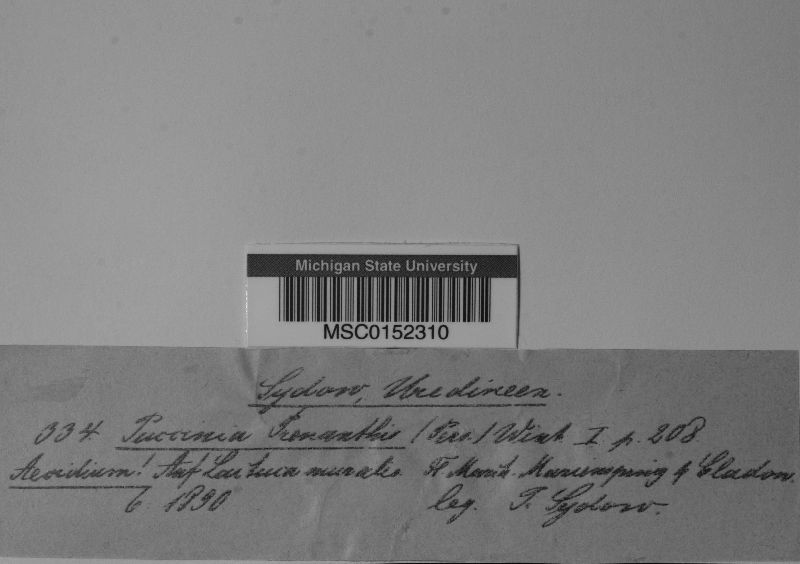 Michigan State University
MSC0152310
Sydow, Uredineen.
334. Puccinia Prenanthis (Pers.) Wint. I p. 208
Aecidium! Auf Lactuca muralis Marienspring Cladow.
6. 1890 leg. P. Sydow.